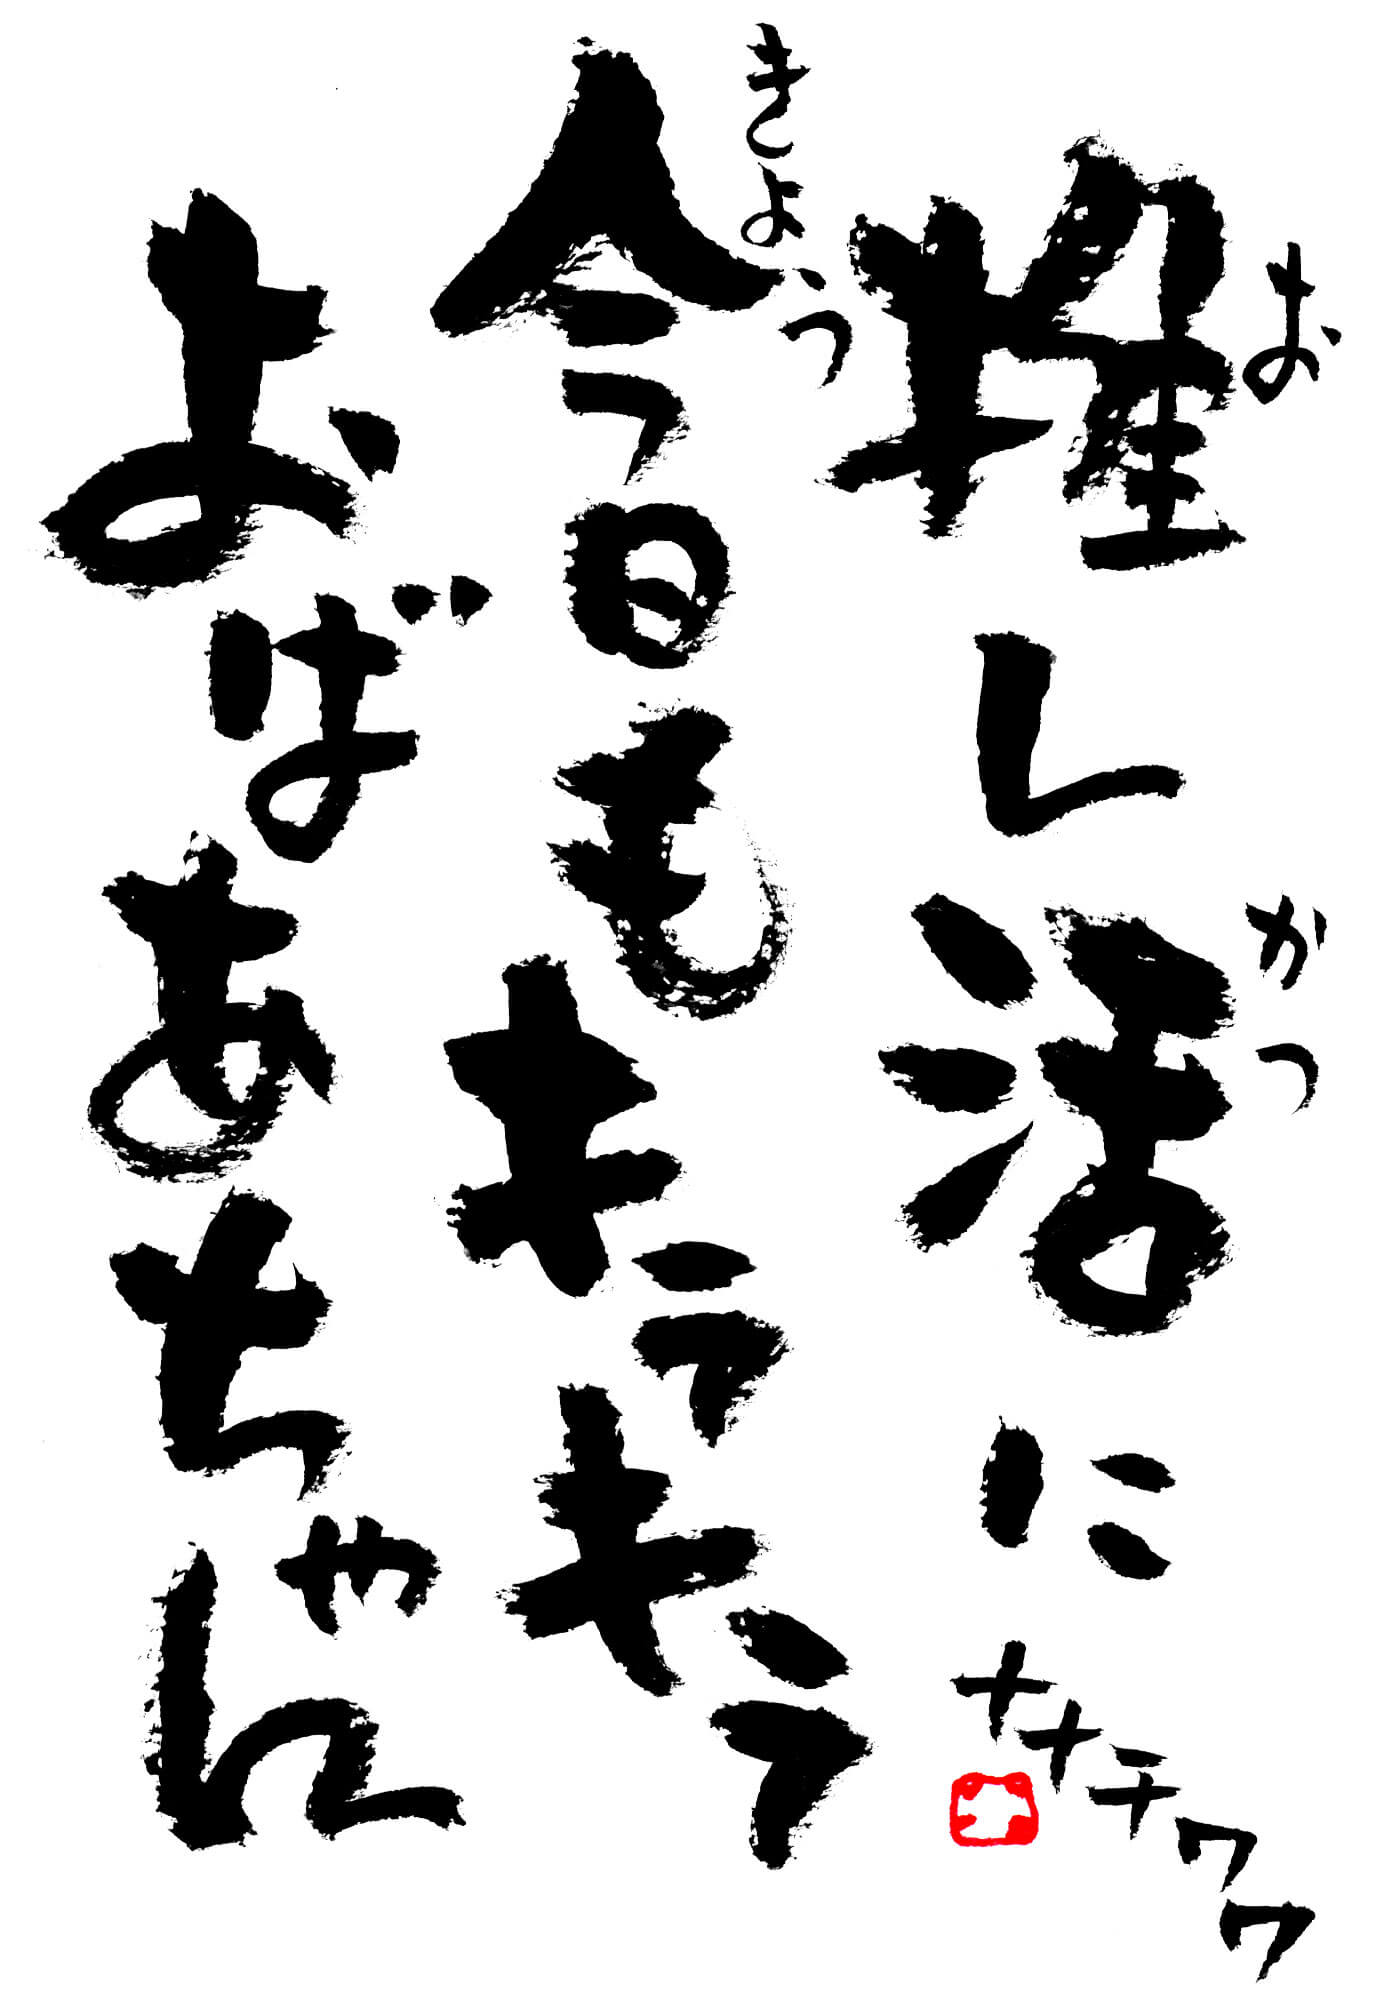 推し活に
おがつ
今日も
きょう
キラキラ
おばあちゃん
ナナテワワ